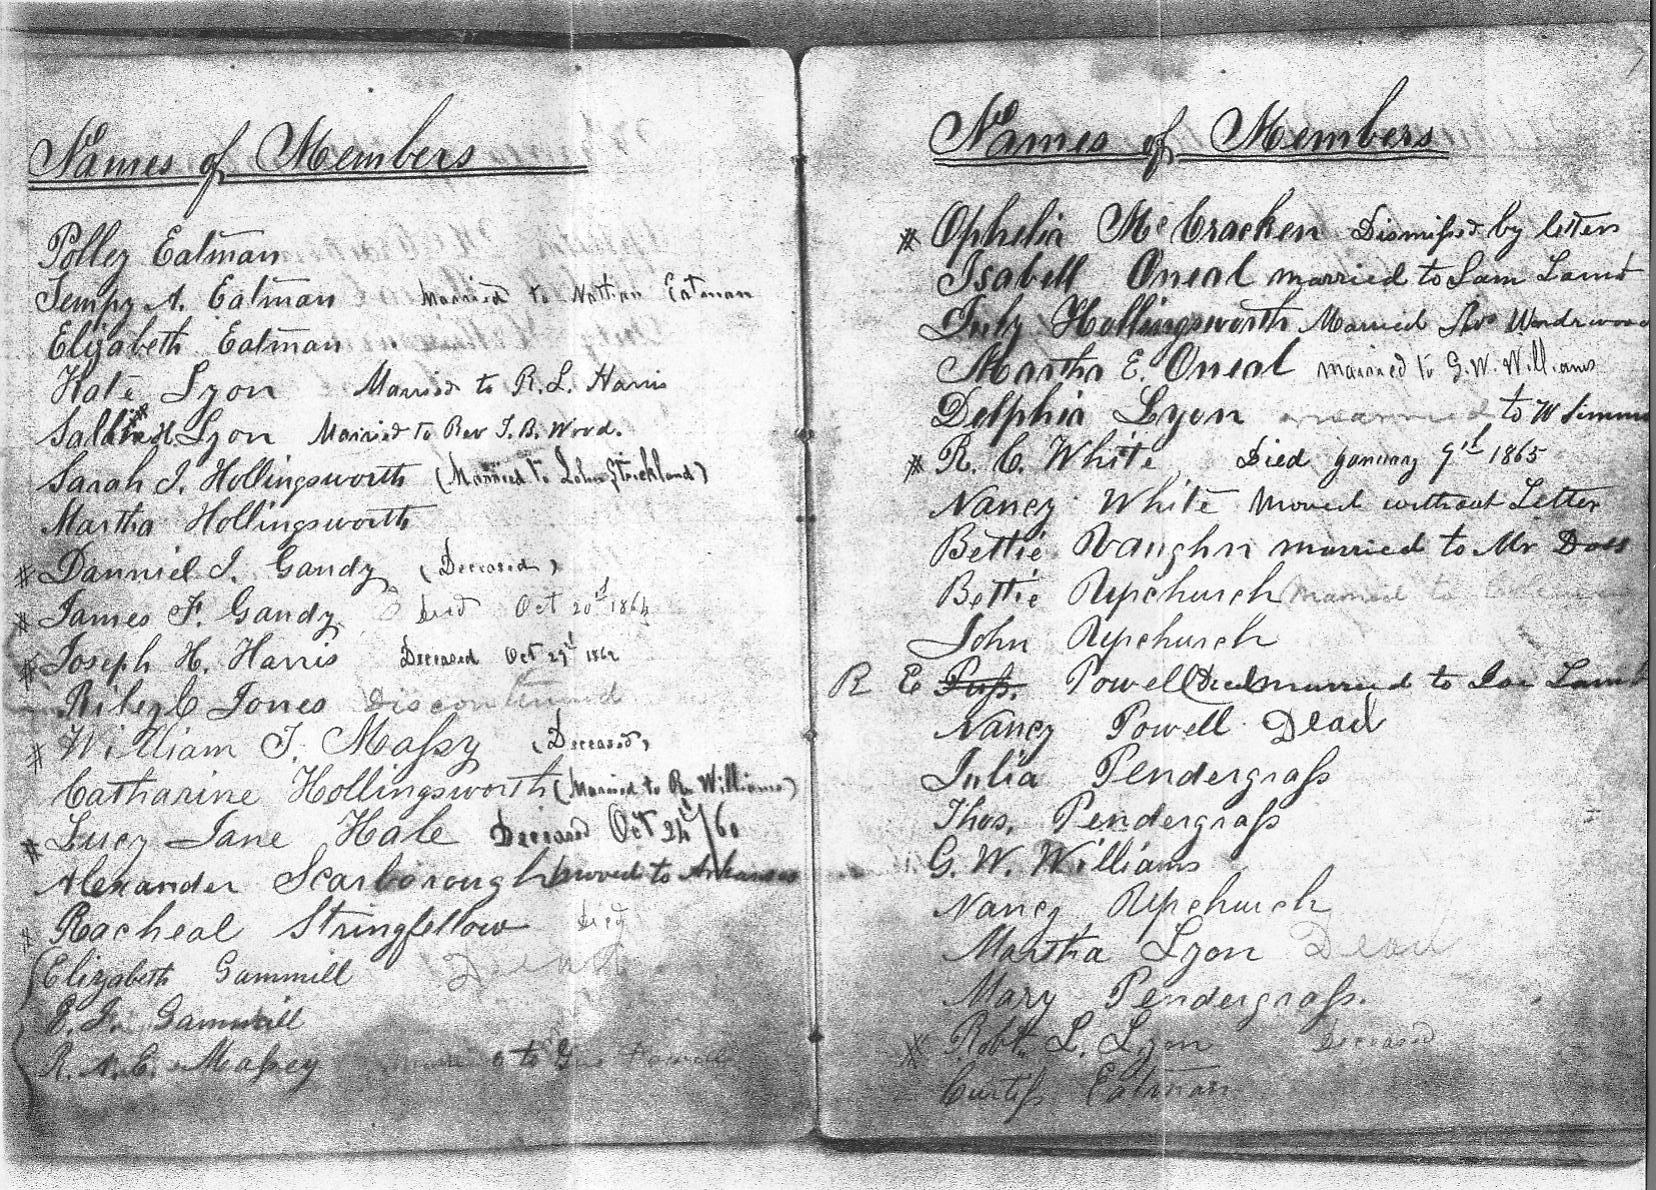 Names of Members
Polley Eatman
Tempy A. Eatman Married to Nathan Eatman
Elizabeth Eatman
Kate Lyon Married to R. L. Harris
Sallie H. Lyon Married to Rev J. B. Wood.
Sarah J. Hollingsworth (Married to John Strickland)
Martha Hollingsworth
# Danniel J. Gandy (Deceased)
# James F. Gandy Died Oct 20th 1864
# Joseph H. Harris Deceased Oct 29th 1862
Riley C Jones Discontinued
# William J. Massy (Deceased)
Catharine Hollingsworth (Married to Williams)
# Lucy Jane Hale Deceased Oct 24th /60
Alexander Scarborough moved to Arkansas
# Racheal Stringfellow Died
Elizabeth Gammill Dead
E. J. Gammill
R. A. E. Massey to
Names of Members
# Ophelia McCracken Dismissed by letter
Isabell Oneal married to Sam Lamb
July Hollingsworth Married
Martha E. Oneal married to G. W. Williams
Delphia Lyon married to W
# R. C. White Died January 9th 1865
Nancy White Moved without Letter
Bettie Vaughn married to Mr Doss
Bettie Upchurch Married to
John Upchurch
R E Puss. Powell (Dead married to Lamb
Nancy Powell Dead
Julia Pendergrass
Thos. Pendergrass
G. W. Williams
Nancy Upchurch
Martha Lyon Dead
Mary Pendergrass.
# Robt. L. Lyon Deceased
Curtiss Eatman